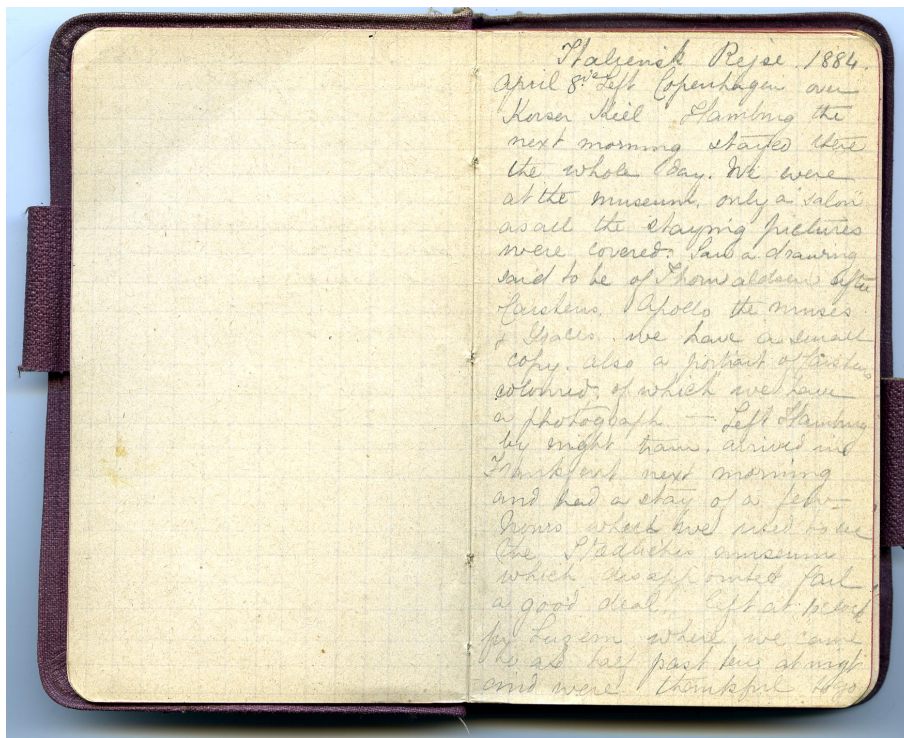 Italiensk Rejse. 1884.
April 8de Left Copenhagen over
Korsør Kiel Hamburg the
next morning stayed there
the whole day. We were
at the museum, only a "salon"
as all the staying pictures
were covered. Saw a drawing
said to be of Thorvaldsen after
Carstens, Apollo the muses
& Graces. we have a small
copy. also a portrait of Carstens
coloured, of which we have
a photograph — Left Hamburg
by night train. arrived in
Frankfurt next morning
and had a stay of a few
hours which we used to see
the museum
which disappointed
a good deal. left at
for Luzern where we came
to at half past at night
and were thankful to go